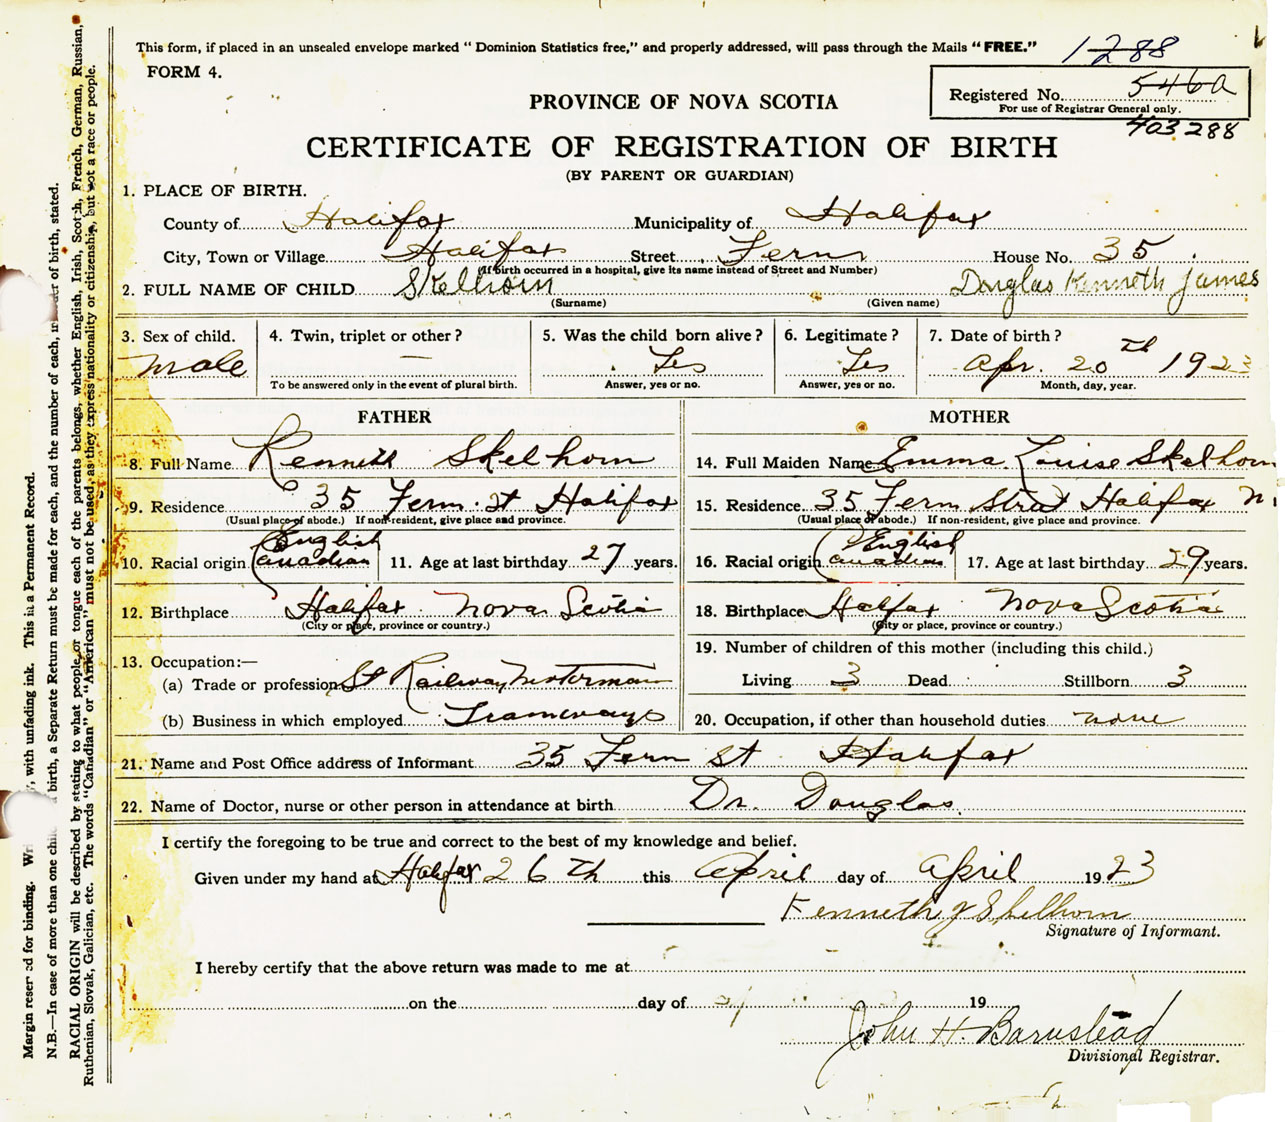 This form, if placed in an unsealed envelope marked "Dominion Statistics free," and properly addressed, will pass through the Mails "FREE."
1288
FORM 4.
Registered No. 546a
For use of Registrar General only.
403288
PROVINCE OF NOVA SCOTIA
CERTIFICATE OF REGISTRATION OF BIRTH
(BY PARENT OR GUARDIAN)
1. PLACE OF BIRTH.
County of Halifax Municipality of Halifax
City, Town or Village Halifax Street Fern House No. 35
(If birth occurred in a hospital, give its name instead of Street and Number)
2. FULL NAME OF CHILD Skelhorn Douglas Kenneth James
(Surname) (Given name)
3. Sex of child. 4. Twin, triplet or other? 5. Was the child born alive? 6. Legitimate? 7. Date of birth?
male — Yes Yes Apr. 20th 1923
To be answered only in the event of plural birth. Answer, yes or no. Answer, yes or no. Month, day, year.
FATHER
8. Full Name Kenneth Skelhorn
9. Residence 35 Fern St Halifax
(Usual place of abode.) If non-resident, give place and province.
10. Racial origin English Canadian 11. Age at last birthday 27 years.
12. Birthplace Halifax Nova Scotia
(City or place, province or country.)
13. Occupation:—
(a) Trade or profession St Railway Motorman
(b) Business in which employed Tramways
MOTHER
14. Full Maiden Name Emma Louise Skelhorn
15. Residence 35 Fern Street Halifax N.
(Usual place of abode.) If non-resident, give place and province.
16. Racial origin English Canadian 17. Age at last birthday 29 years.
18. Birthplace Halifax Nova Scotia
(City or place, province or country.)
19. Number of children of this mother (including this child.)
Living 3 Dead Stillborn 3
20. Occupation, if other than household duties none
21. Name and Post Office address of Informant 35 Fern St Halifax
22. Name of Doctor, nurse or other person in attendance at birth Dr. Douglas.
I certify the foregoing to be true and correct to the best of my knowledge and belief.
Given under my hand at Halifax 26th this April day of April 1923
Kenneth J Skelhorn
Signature of Informant.
I hereby certify that the above return was made to me at
on the day of 19
John H. Barnstead
Divisional Registrar.
Margin reserved for binding. with unfading ink. This is a Permanent Record.
N.B.—In case of more than one birth, a Separate Return must be made for each, and the number of each, in of birth, stated.
RACIAL ORIGIN will be described by stating to what people or tongue each of the parents belongs, whether English, Irish, Scotch, French, German, Russian,
Ruthenian, Slovak, Galician, etc. The words "Canadian" or "American" must not be used, as they express nationality or citizenship, but not a race or people.